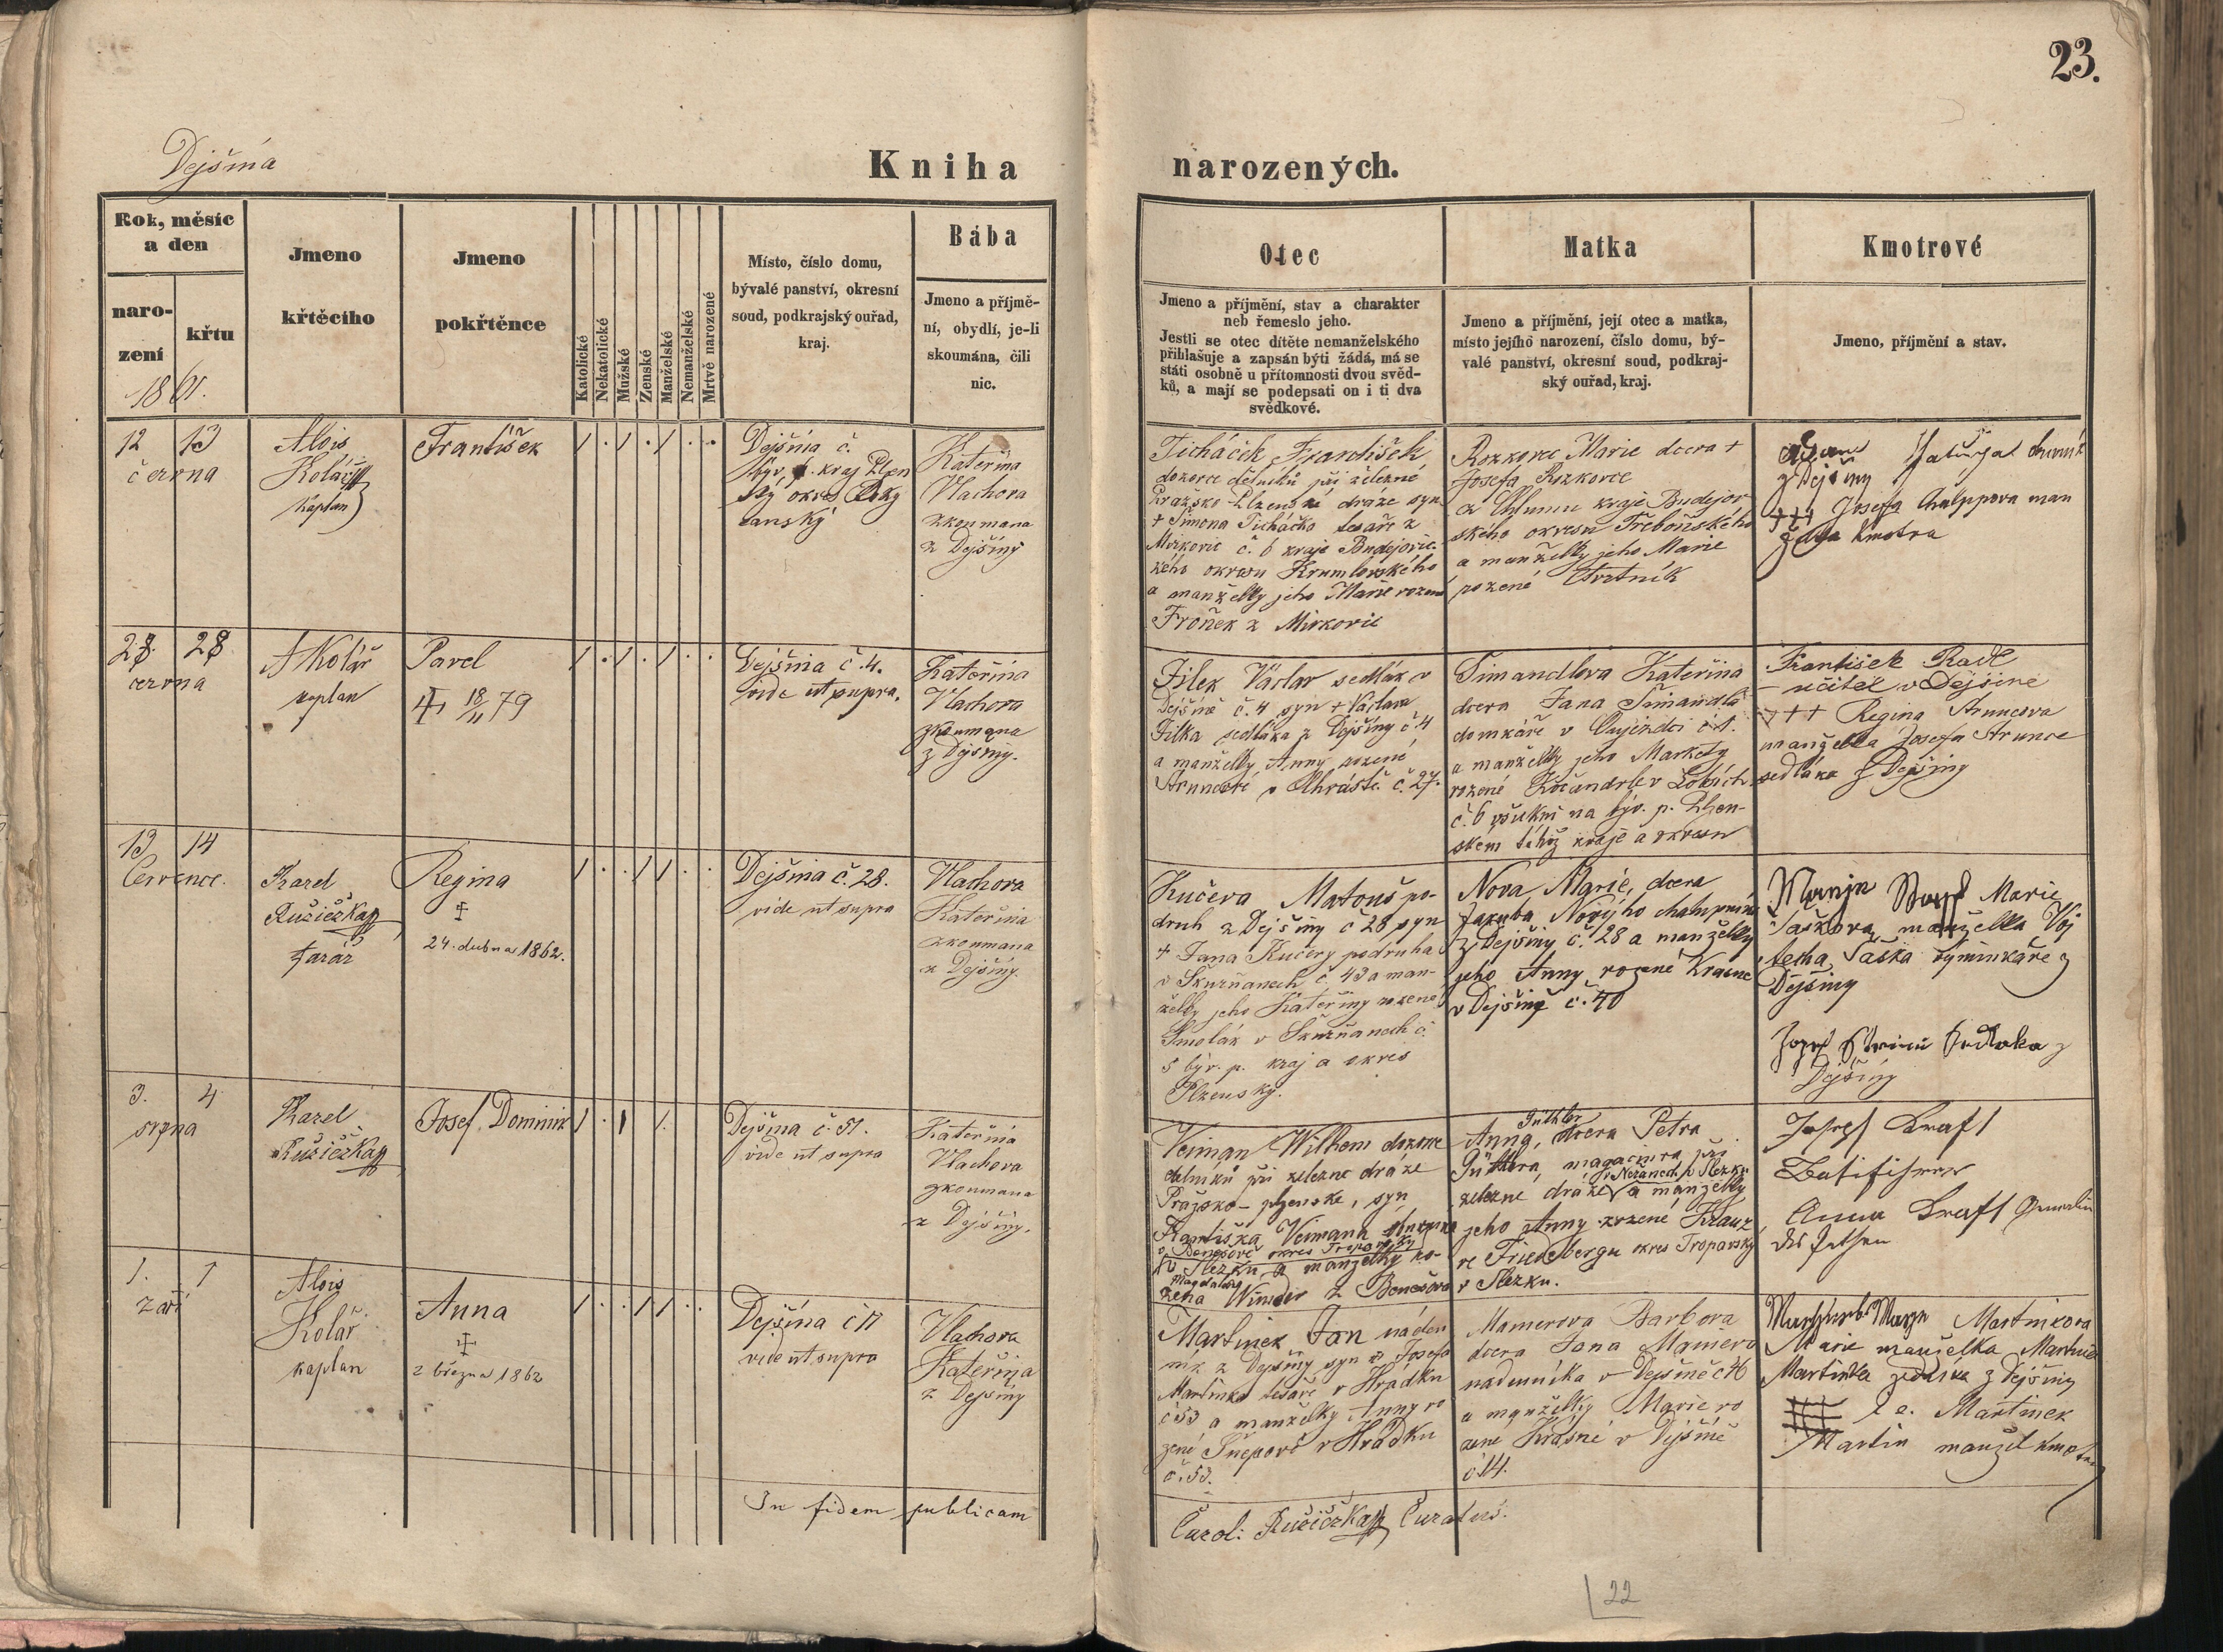 23.
Dejšina
Kniha narozených.
Rok, měsíc
a den
naro-
zení
křtu
1861.
Jmeno
křtěcího
Jmeno
pokřtěnce
Katolické
Nekatolické
Mužské
Ženské
Manželské
Nemanželské
Mrtvě narozené
Místo, číslo domu,
bývalé panství, okresní
soud, podkrajský ouřad,
kraj.
Bába
Jmeno a příjmě-
ní, obydlí, je-li
skoumána, čili
nic.
Otec
Jmeno a příjmění, stav a charakter
neb řemeslo jeho.
Jestli se otec dítěte nemanželského
přihlašuje a zapsán býti žádá, má se
státi osobně u přítomnosti dvou svěd-
ků, a mají se podepsati on i ti dva
svědkové.
Matka
Jmeno a příjmění, její otec a matka,
místo jejího narození, číslo domu, bý-
valé panství, okresní soud, podkraj-
ský ouřad, kraj.
Kmotrové
Jmeno, příjmění a stav.
12 13
června
Alois
Kolář
kaplan
František
Dejšina č.
býv. p. kraj Plzen
ský okres Roky
canský
Kateřina
Vlachova
zkoumana
z Dejšiny
Ticháček František
dozorce dělníků při železné
Pražsko-Plzenské dráze syn
+ Šimona Ticháčka tesaře z
Mirkovic č. 6 kraje Budejovic
kého okresu Krumlovského
a manželky jeho Marie rozené
Froněk z Mirkovic
Rozkovec Marie dcera +
Josefa Rozkovce
z Chlumu kraje Budejov
ského okresu Třeboňského
a manželky jeho Marie
rozené Ctvrtník
z Dejšiny
+++ Josefa Chalupova man
želka kmotra
28. 28
června
A Kolář
kaplan
Pavel
18/11 79
Dejšina č. 4.
vide ut supra.
Kateřina
Vlachova
zkoumana
z Dejšiny.
Jilek Václav sedlák v
Dejšině č. 4 syn + Václava
Jilka sedláka z Dejšiny č 4
a manželky Anny rozené
Struncové v Chrástě č. 27.
Šimandlova Kateřina
dcera Jana Šimandla
domkáře v č 1.
a manželky jeho Markety
rozené
č. 6 na býv. p. Plzen-
ském téhož kraje a okresu
František Radl
učitel v Dejšině
+++ Regina Struncova
manželka Josefa Strunce
sedláka z Dejšiny
13 14
Července.
Karel
Ružička
farář
Regina
24. dubna 1862.
Dejšina č. 28.
vide ut supra
Vlachova
Kateřina
zkoumana
z Dejšiny.
Kučera Matouš po-
druh z Dejšiny č 28 syn
+ Jana Kučery podruha
v Skurňanech č. 43 a man-
želky jeho Kateřiny rozené
Smolák v Skurňanech č.
5 býv. p. kraj a okres
Plzensky.
Nová Marie, dcera
Jakuba Nového chalupníka
z Dejšiny č. 28 a manželky
jeho Anny rozené Krasne
v Dejšině č. 40
Marie
Šaškova manželka Voj
těcha Šaška z
Dejšiny
sedlaka z
Dejšiny
3. 4
srpna
Karel
Ružička
Josef Dominik
Dejšina č. 51.
vide ut supra
Kateřina
Vlachova
zkoumana
z Dejšiny.
Veiman Wilhem dozorce
delniků při zelezne dráze
Pražsko-plzenske, syn
Františka Veimann
v Benešově okres Tropavsky
v Slezku a manželky ro-
Magdalena
zena Winder z Benešova
Güthler
Anna, dcera Petra
Güthlera, magacinira při
v Slezku
zelezné dráze a manželky
jeho Anny rozené Krauz
ve Friedebergu okres Tropavsky
v Slezku.
Josef Kraft
Anna Kraft Gemalin
1. 1
září
Alois
Kolář
kaplan
Anna
2 března 1862
Dejšina č 17
vide ut supra
Vlachova
Kateřina
z Dejšiny
Martinek Jan náden
ník z Dejšiny syn Josefa
Martinka tesaře v Hrádku
č 53 a manželky Anny ro
zené Šneparé v Hrádku
č. 53.
Mamerova Barbora
dcera Jana Mamera
nademníka v Dejšině č 46
a manželky Marie ro
zene Krásné v Dejšině
č 14.
Martinkova
Marie manželka
Martinka sedláka z Dejšiny
Martinek
Martin manžel kmotry
In fidem publicam
Carol: Ružička Curatus.
22